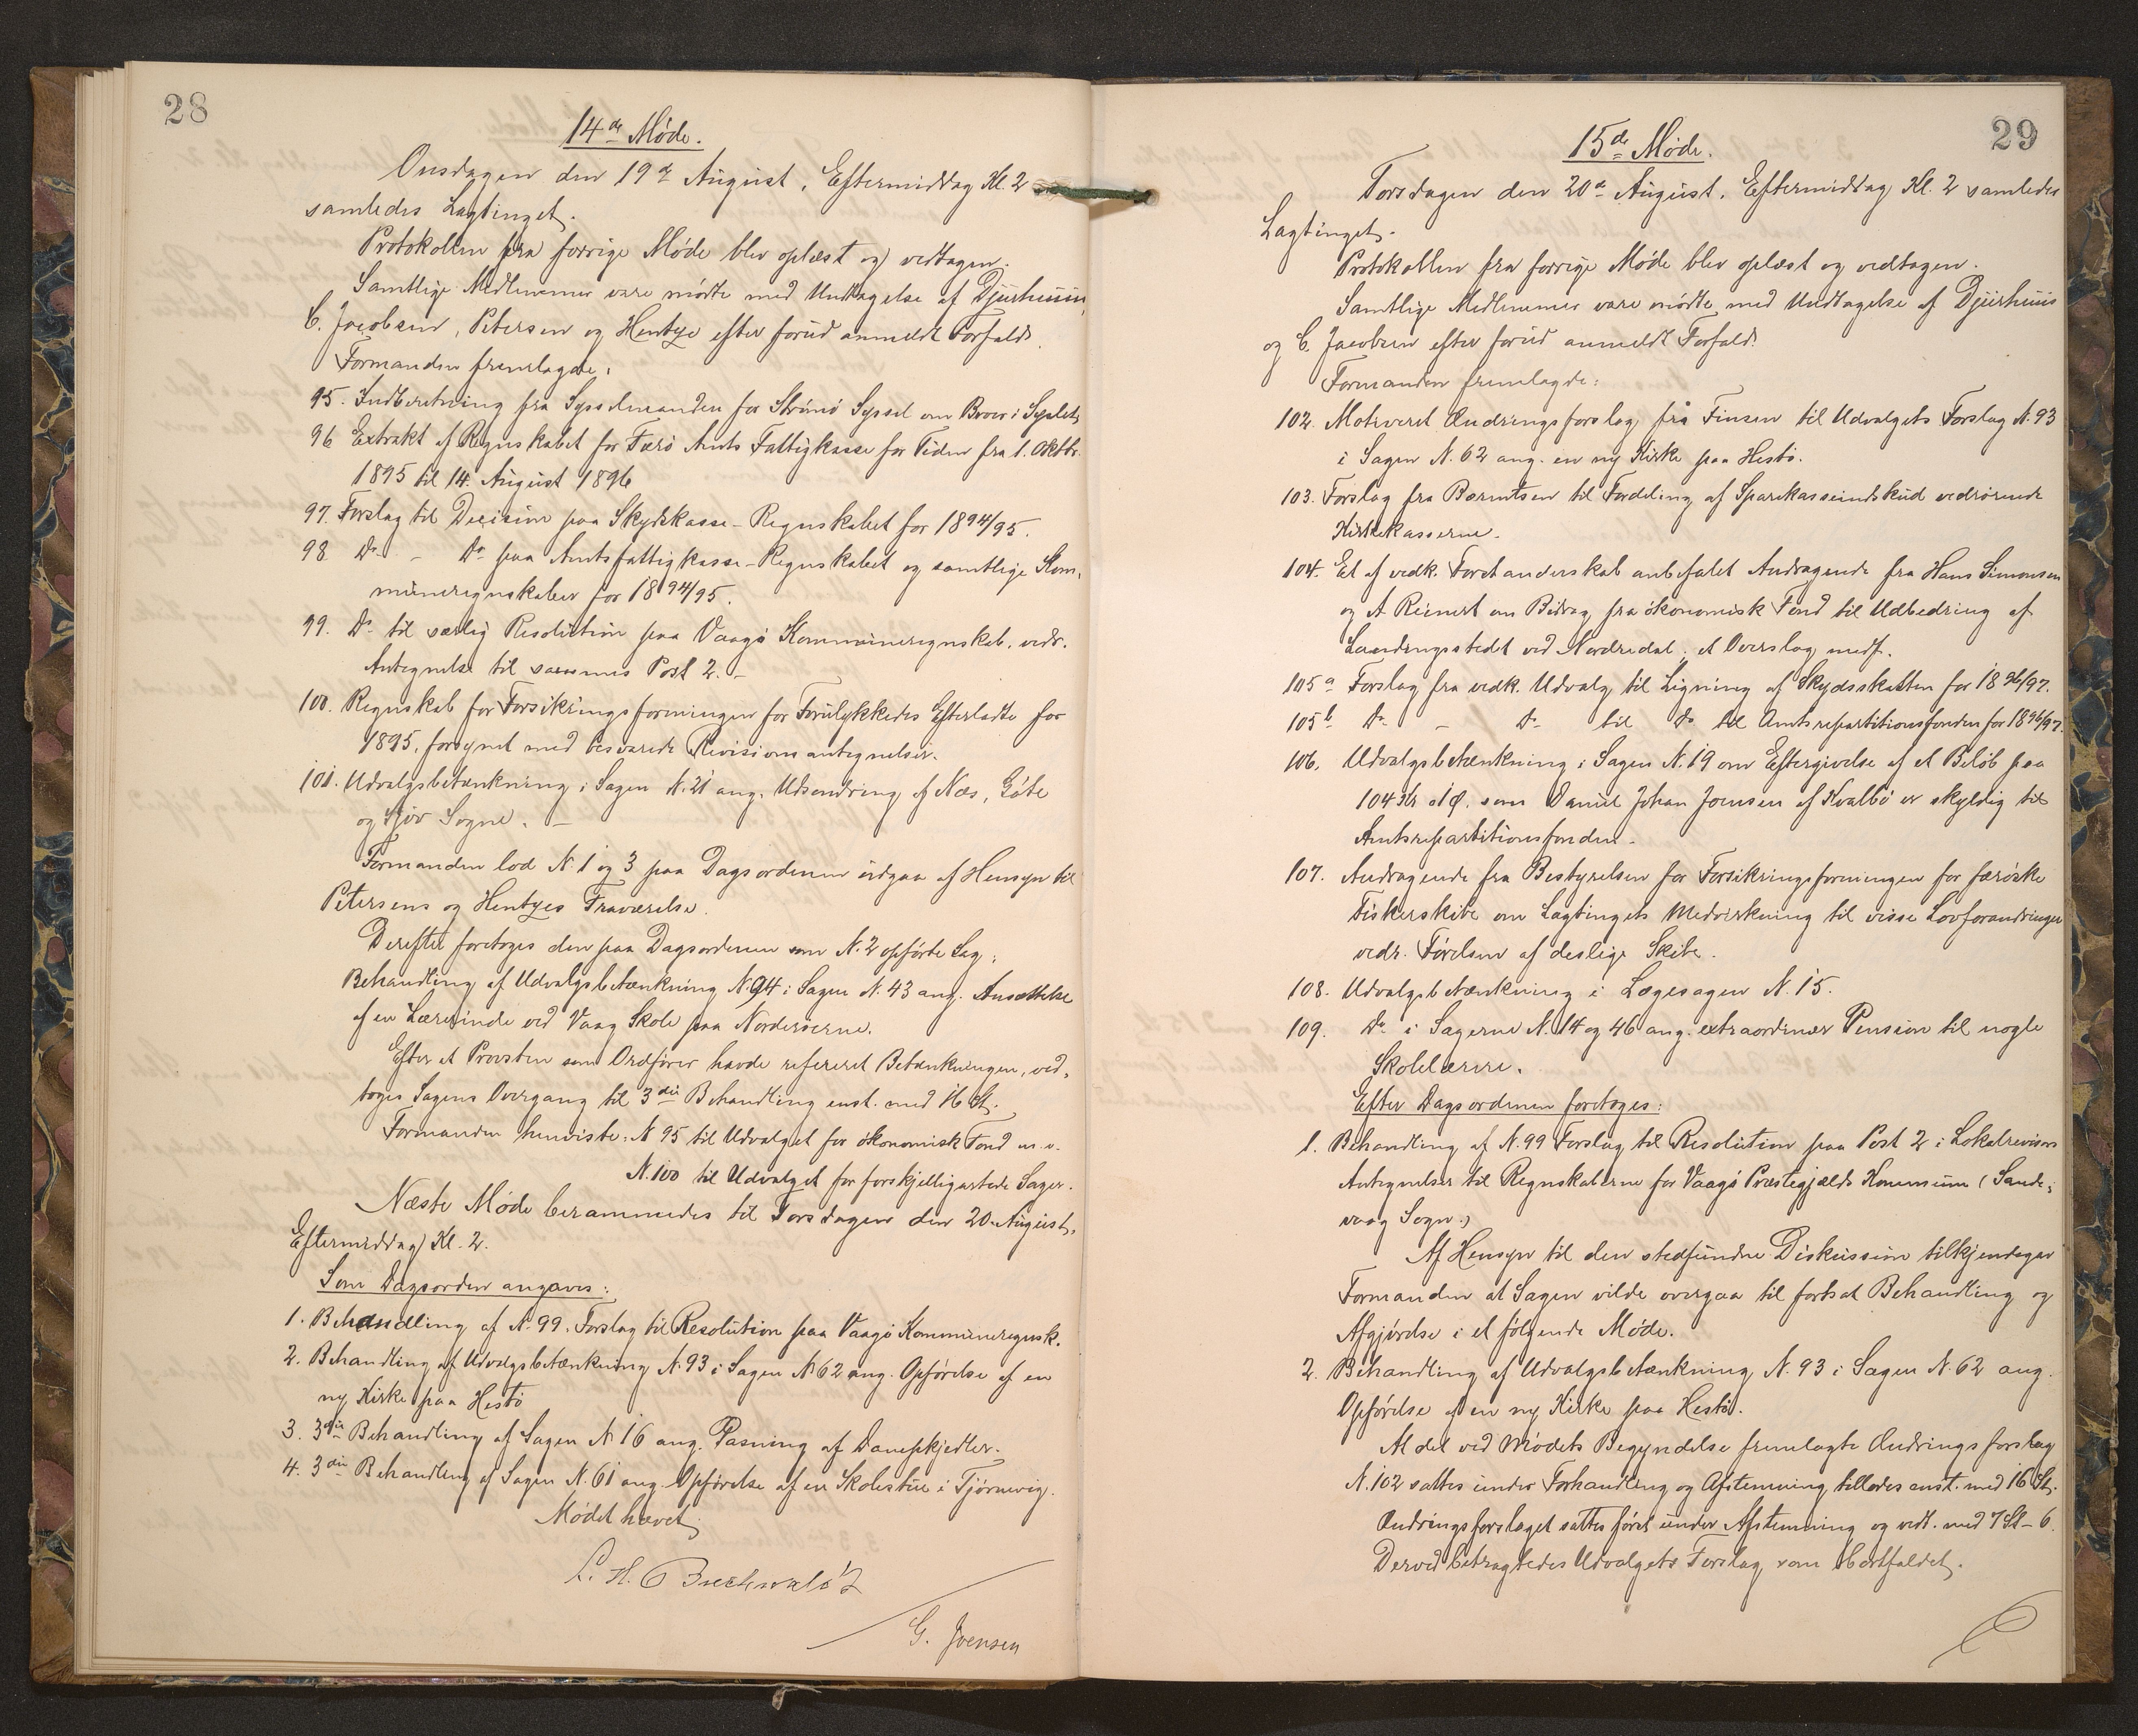 28
14de Møde.
Onsdagen den 19de August, Eftermiddag Kl. 2
samledes Lagtinget.
Protokollen fra forrige Møde blev oplæst og vedtagen.
Samtlige Medlemmer vare mødte med Undtagelse af Djurhuus,
C. Jacobsen, Petersen og Hentze efter forud anmeldt Forfald.
Formanden fremlagde:
95. Indberetning fra Sysselmanden for Strømø Syssel om Broer i Sysslet,
96 Extrakt af Regnskabet for Færø Amts Fattigkasse for Tiden fra 1. Oktbr.
1895 til 14. August 1896
97. Forslag til Decision paa Skydskasse-Regnskabet for 1894/95.
98 Do - Do paa Amtsfattigkasse-Regnskabet og samtlige Kom-
muneregnskaber for 1894/95.
99. Do til særlig Resolution paa Vaagø Kommuneregnskab, vedr.
Antegnelse til sammes Post 2. -
100. Regnskab for Forsikringsforeningen for Forulykkedes Efterladte for
1895, forsynet med besvarede Revisionsantegnelser.
101. Udvalgsbetænkning i Sagen N. 21 ang. Udsondring af Næs, Gøte
og Sjov Sogne. -
Formanden lod N. 1 og 3 paa Dagsordenen udgaa af Hensyn til
Petersens og Hentzes Fraværelse.
Derefter foretoges den paa Dagsordenen som N. 2 opførte Sag:
Behandling af Udvalgsbetænkning N. 94 i Sagen N. 43 ang. Ansættelse
af en Lærerinde ved Vaag Skole paa Norderøerne.
Efter at Provsten som Ordfører havde refereret Betænkningen, ved-
toges Sagens Overgang til 3die Behandling enst. med 16 St.
Formanden henviste: N 95 til Udvalget for økonomisk Fond m. v.
N. 100 til Udvalget for forskjelligartede Sager.
Næste Møde berammedes til Torsdagen den 20. August,
Eftermiddag Kl. 2.
Som Dagsorden angaves:
1. Behandling af N. 99. Forslag til Resolution paa Vaagø Kommuneregnsk.
2. Behandling af Udvalgsbetænkning N. 93 i Sagen N 62 ang. Opførelse af en
ny Kirke paa Hestø
3. 3die Behandling af Sagen N. 16 ang. Pasning af Dampkjedler.
4. 3die Behandling af Sagen N. 61 ang. Opførelse af en Skolestue i Tjørnevig.
Mødet hævet.
L. H. Buchwaldt
G. Joensen
29
15de Møde.
Torsdagen den 20de August, Eftermiddag Kl. 2 samledes
Lagtinget.
Protokollen fra forrige Møde blev oplæst og vedtagen.
Samtlige Medlemmer vare mødte med Undtagelse af Djurhuus
og C. Jacobsen efter forud anmeldt Forfald.
Formanden fremlagde:
102. Motiveret Ændringsforslag fra Finsen til Udvalgets Forslag N. 93
i Sagen N. 62 ang. en ny Kirke paa Hestø.
103. Forslag fra Bærentsen til Fordeling af Sparekasseindskud vedrørende
Kirkekasserne.
104. Et af vedk. Forstanderskab anbefalet Andragende fra Hans Simonsen
og A Reinert om Bidrag fra økonomisk Fond til Udbedring af
Landingsstedet ved Nordredal; et Overslag medf.
105a Forslag fra vedk. Udvalg til Ligning af Skydsskatten for 1896/97.
105b Do - Do til Do til Amtsrepartitionsfonden for 1896/97.
106. Udvalgsbetænkning i Sagen N. 19 om Eftergivelse af et Beløb paa
104 Kr 01 Ø. som Daniel Johan Joensen af Kvalbø er skyldig til
Amtsrepartitionsfonden.
107. Andragende fra Bestyrelsen for Forsikringsforeningen for færøske
Fiskerskibe om Lagtingets Medvirkning til visse Lovforandringer
vedr. Førelsen af deslige Skibe.
108. Udvalgsbetænkning i Lægesagen N. 15.
109. Do i Sagerne N. 14 og 46 ang. extraordinær Pension til nogle
Skolelærere.
Efter Dagsordenen foretoges:
1. Behandling af N. 99 Forslag til Resolution paa Post 2 i Lokalrevisors
Antegnelser til Regnskaberne for Vaagø Præstegjælds Kommune (Sande-
vaag Sogn.)
Af Hensyn til den stedfundne Diskussion tilkjendegav
Formanden at Sagen vilde overgaa til fortsat Behandling og
Afgjørelse i et følgende Møde.
2. Behandling af Udvalgsbetænkning N. 93 i Sagen N. 62 ang.
Opførelse af en ny Kirke paa Hestø.
At det ved Mødets Begyndelse fremlagte Ændringsforslag
N. 102 sattes under Forhandling og Afstemning tillodes enst. med 16 St.
Ændringsforslaget sattes først under Afstemning og vedt. med 7 St - 6.
Derved betragtedes Udvalgets Forslag som bortfaldet.